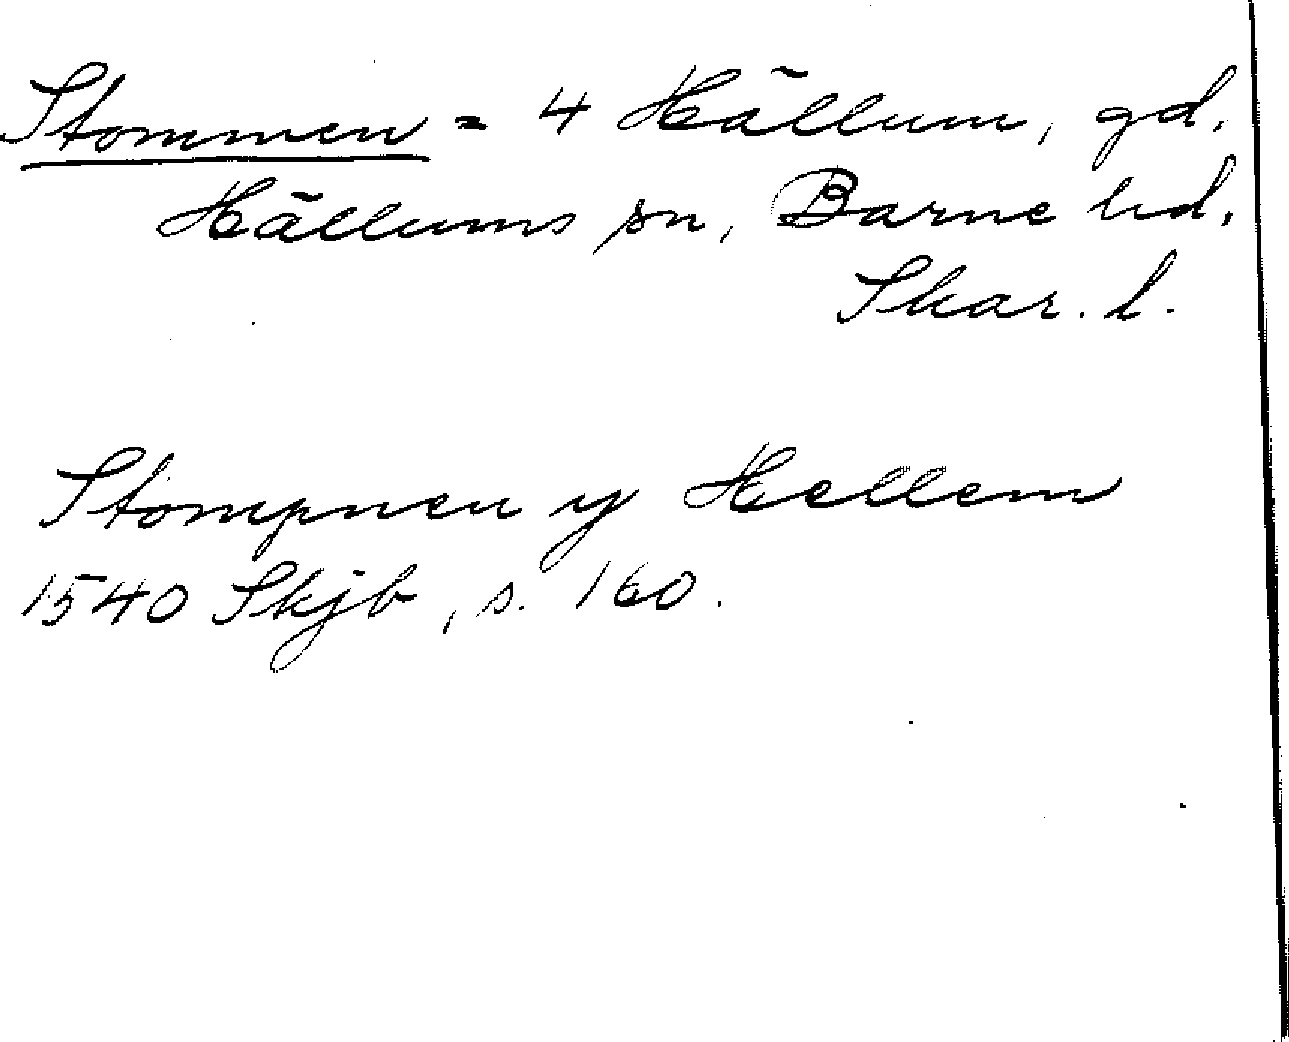 Stommen = 4 Hällum, gd.
Hällums sn, Barne hd.
Skar. l.
Stompnen y Hellem
1540 Skjb, s. 160.